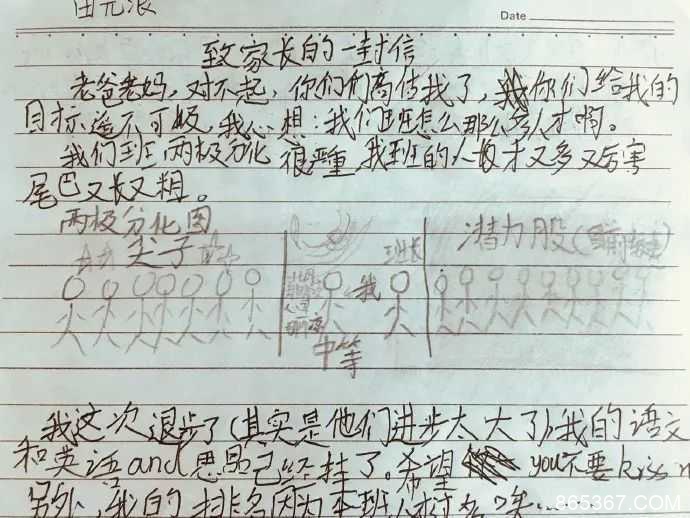 田元浪
Date
致家长的一封信
老爸老妈，对不起，你们们高估我了，你们给我的
目标遥不可极，我心想：我们班怎么那么多人才啊。
我们班两极分化很严重，我班的人才又多又厉害
尾巴又长又粗。
两极分化图
尖子
班长
潜力股(目前
我
中等
我这次退步了(其实是他们进步太大了)我的语文
和英语and思品已经挂了。希望 you不要kiss
另外，我的排名因为本班人才太多
865367.COM